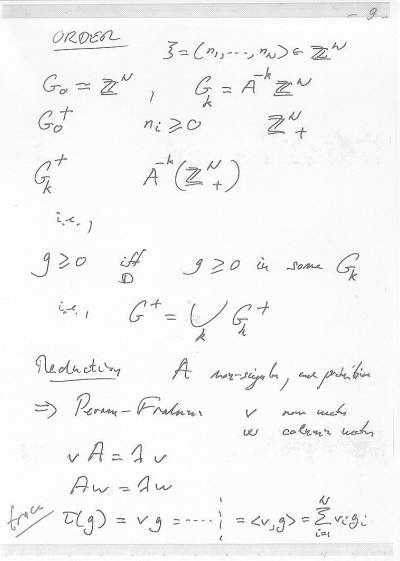 - 9 -
ORDER
ξ = (n₁, ⋯, n_N) ∈ ℤᴺ
G₀ ≃ ℤᴺ , G_k = A⁻ᵏ ℤᴺ
G₀⁺ nᵢ ≥ 0 ℤᴺ₊
G_k⁺ A⁻ᵏ(ℤᴺ₊)
i.e.,
g ≥ 0 iff g ≥ 0 in some G_k
D
i.e., G⁺ = ⋃_k G_k⁺
Reduction A non-singular, and primitive
⇒ Perron-Frobenius v row vector
w column vector
v A = λ v
A w = λ w
trace τ(g) = v g = ⋯⋯ = ⟨v, g⟩ = ∑ᵢ₌₁ᴺ vᵢ gᵢ